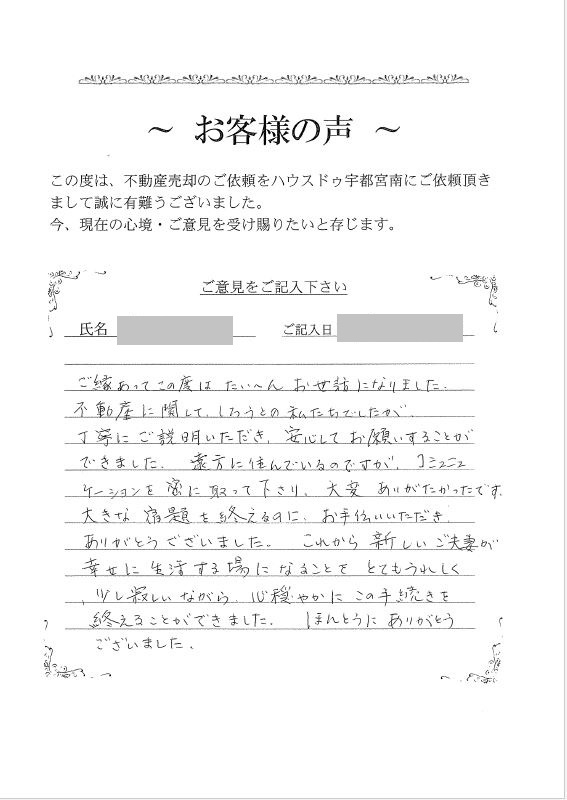 ～ お客様の声 ～
この度は、不動産売却のご依頼をハウスドゥ宇都宮南にご依頼頂き
まして誠に有難うございました。
今、現在の心境・ご意見を受け賜りたいと存じます。
ご意見をご記入下さい
氏名 ご記入日
ご縁あってこの度は たい〜ん お世話になりました.
不動産に関して、しろうとの私たちでしたが、
丁寧にご説明いただき、安心して お願いすることが
できました. 遠方に住んでいるのですが、コミュニ
ケーションを 密に 取って下さり、大変 ありがたかったです.
大きな 宿題を 終えるのに、お手伝いいただき、
ありがとうございました. これから 新しい ご夫妻が
幸せに 生活する場に なることを とてもうれしく
、少し寂しいながら、心穏やかに この手続きを
終えることができました. ほんとうに ありがとう
ございました.